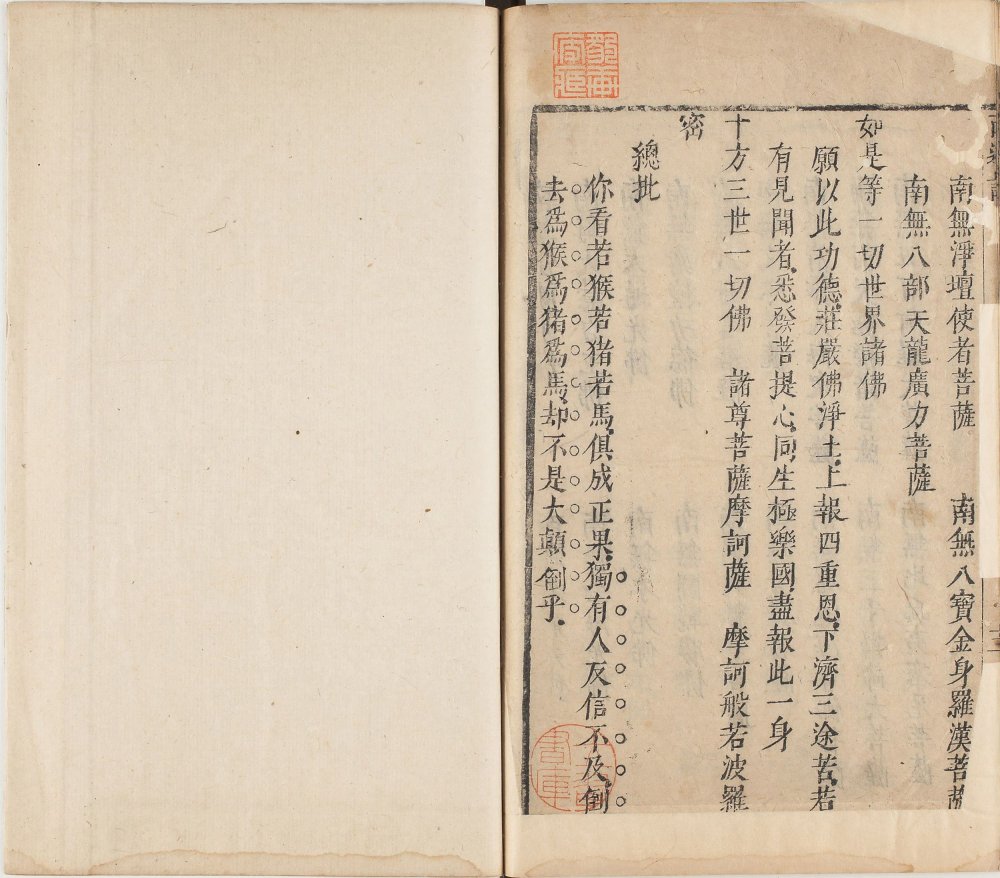 南無淨壇使者菩薩　南無八寶金身羅漢菩薩
南無八部天龍廣力菩薩
如是等一切世界諸佛
願以此功德莊嚴佛淨土上報四重恩下濟三途苦若
有見聞者悉發菩提心同生極樂國盡報此一身
十方三世一切佛　諸尊菩薩摩訶薩　摩訶般若波羅
密
總批
你看若猴若猪若馬俱成正果獨有人反信不及倒
去爲猴爲猪爲馬却不是大顛倒乎
書庫